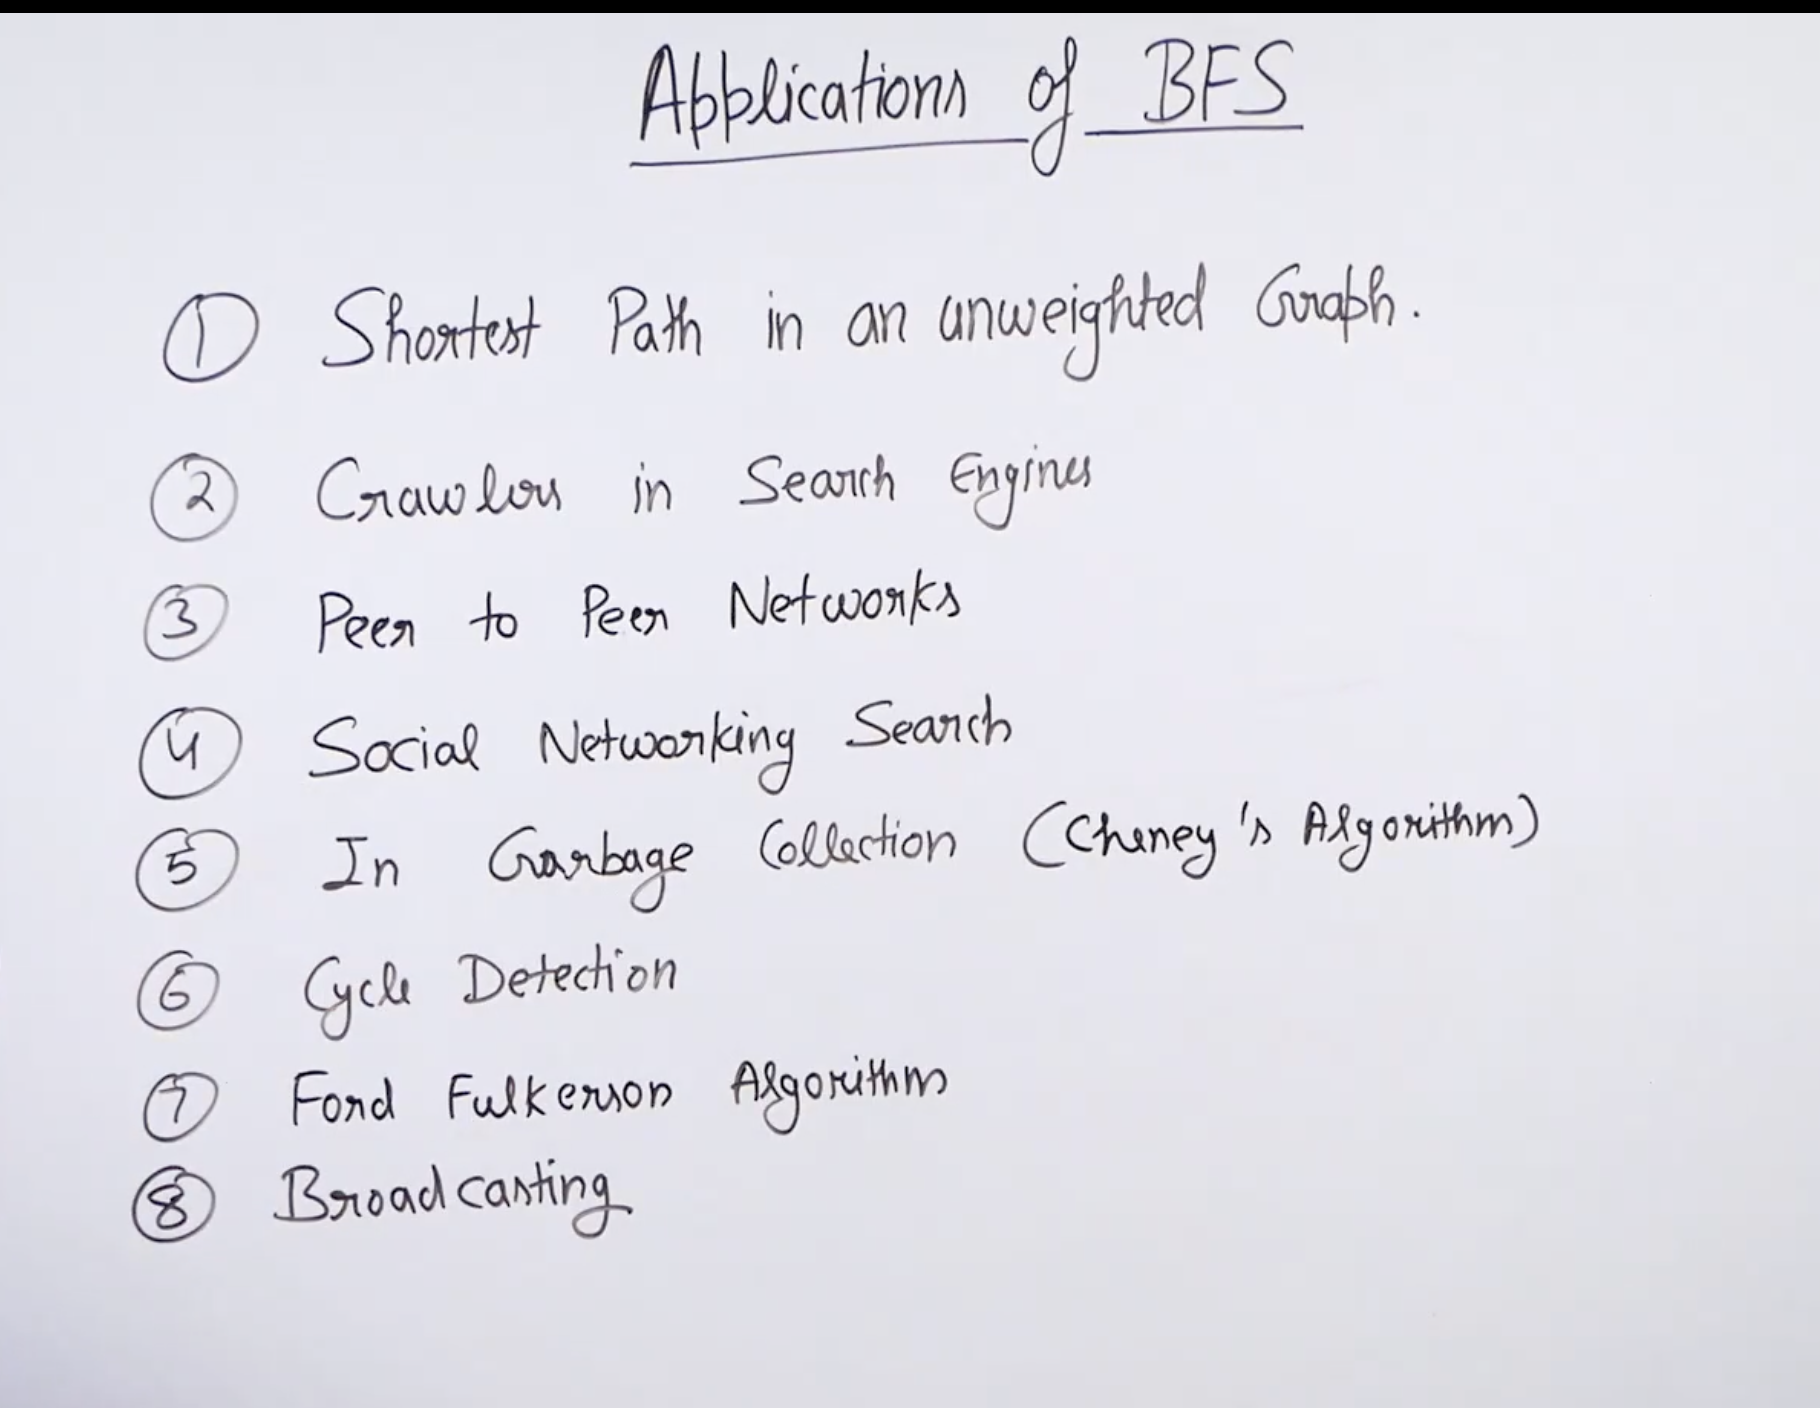 Applications of BFS
① Shortest Path in an unweighted Graph.
② Crawlers in Search Engines
③ Peer to Peer Networks
④ Social Networking Search
⑤ In Garbage Collection (Cheney's Algorithm)
⑥ Cycle Detection
⑦ Ford Fulkerson Algorithm
⑧ Broadcasting